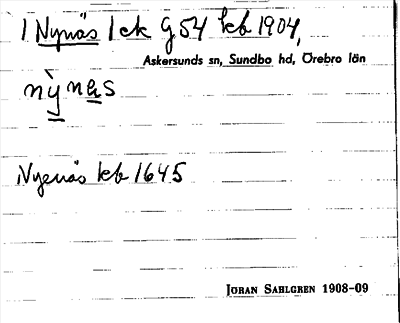 1 Nynäs 1 ck G 54 kb 1904,
Askersunds sn, Sundbo hd, Örebro län
nỳnes
Nyenäs kb 1645
JÖRAN SAHLGREN 1908-09